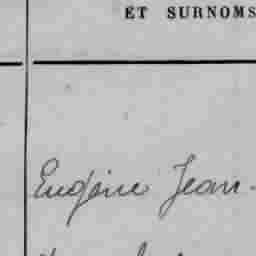 ET SURNOMS
Eugène Jean-